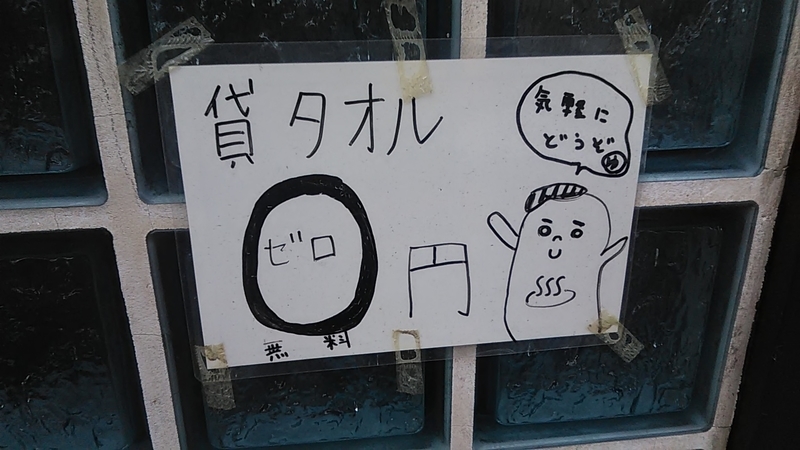 貸タオル
気軽に
どうぞ
0円
ゼロ
無料